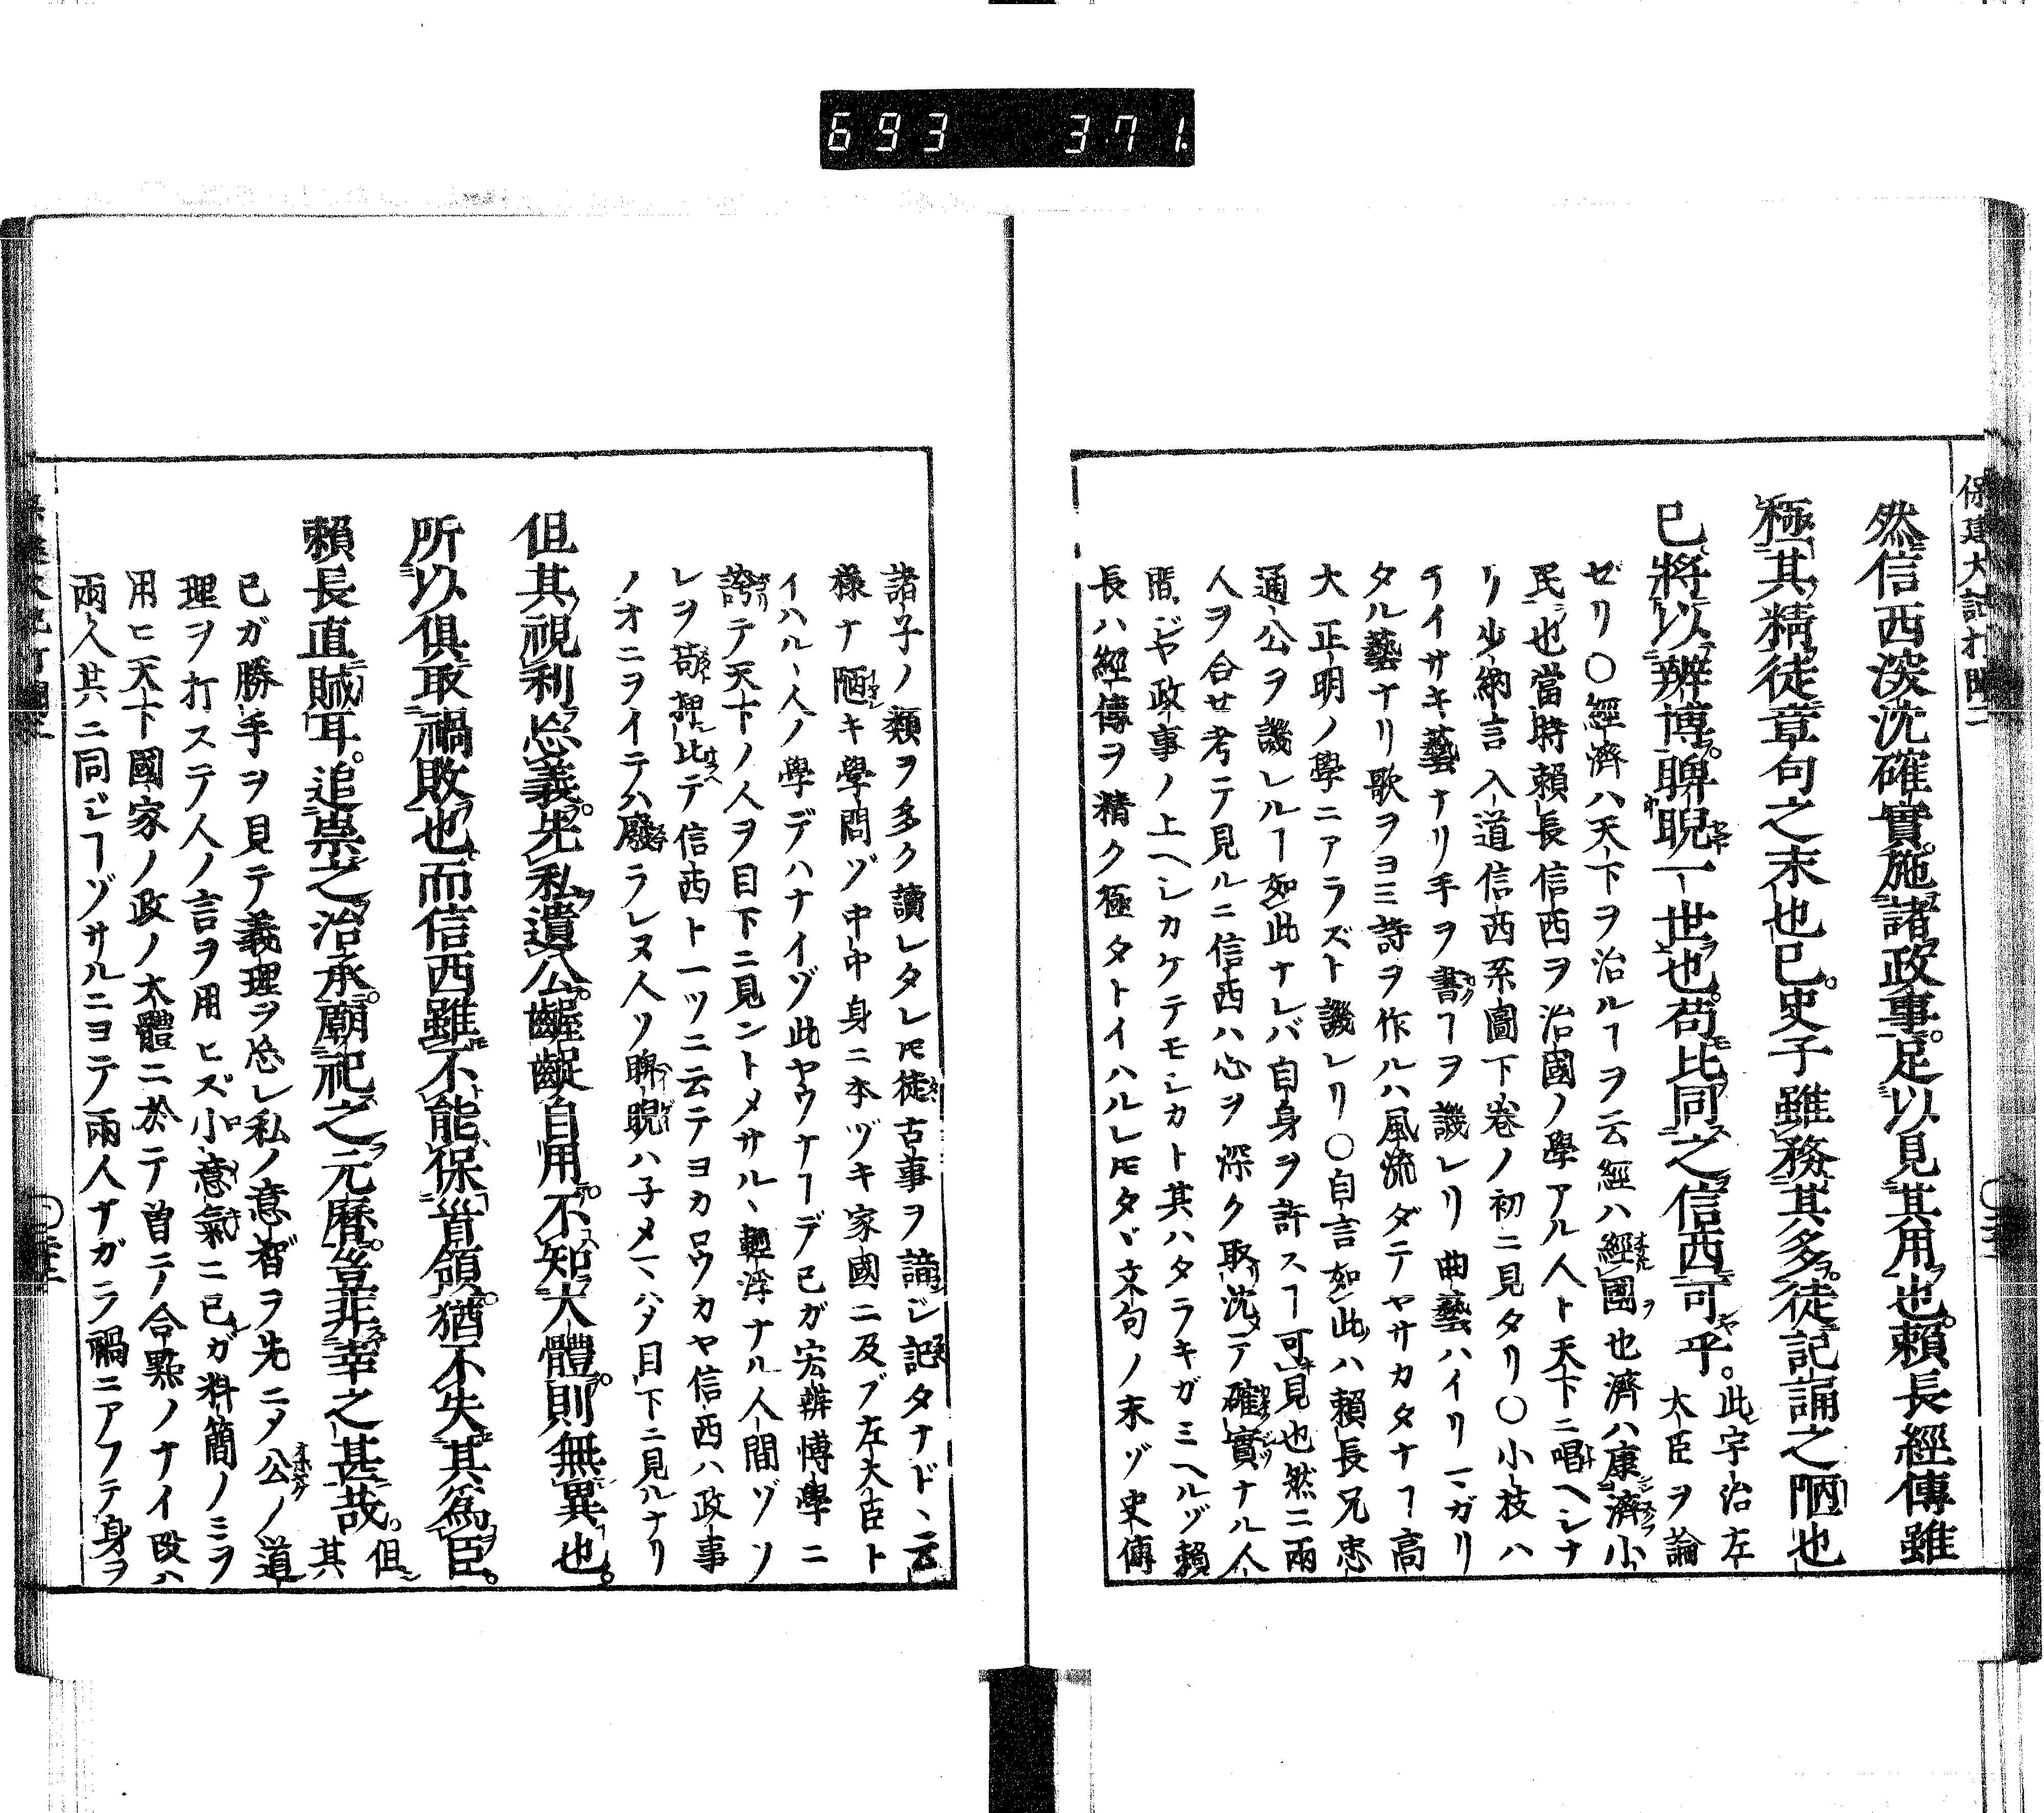 693 371.
保建大記打聞二
然信西深沈確實。施諸政事。足以見其用也。頼長經傳雖
極其精徒章句之末也已。史子雖務其多。徒記誦之陋也
已將以辨博。睥睨一世也。苟比同之信西可乎。此宇治左
大臣ヲ論
ゼリ〇經濟ハ天下ヲ治ルヿヲ云經ハ經國也濟ハ康濟小
民也當時頼長信西ヲ治國ノ學アル人ト天下ニ唱ヘシナ
リ少納言入道信西系圖下卷ノ初ニ見タリ〇小枝ハ
チイサキ藝ナリ手ヲ書クヿヲ譏レリ曲藝ハイリマガリ
タル藝ナリ歌ヲヨミ詩ヲ作ルハ風流ダテヤサカタナヿ高
大正明ノ學ニアラズト譏レリ〇自言如此ハ頼長兄忠
通公ヲ譏レルヿ如此ナレバ自身ヲ許スヿ可見也然ニ兩
人ヲ合せ考テ見ルニ信西ハ心ヲ深ク取沈テ確實ナル人
ジヤ政事ノ上ヘシカケテモシカト其ハタラキガミヘルゾ頼
長ハ經傳ヲ精ク極タトイハルレ𪜈タヾ文句ノ末ヅ史傳
諸子ノ類ヲ多ク讀レタレ𪜈徒古事ヲ諳ジ記タナド、云
樣ナ陋キ學問ヅ中中身ニ本ヅキ家國ニ及ブ左大臣ト
イハルヽ人ノ學デハナイヅ此ヤウナヿデ己ガ宏辨博學ニ
誇テ天下ノ人ヲ目下ニ見ントメサルヽ輕浮ナル人間ヅソ
レヲ苟押比テ信西ト一ツニ云テヨカロウカヤ信西ハ政事
ノオニヲイテハ廢ラレヌ人ソ睥睨ハ子メマハタ目下ニ見ルナリ
但其視利忘義。先私遺公。齷齪自用。不知大體。則無異也。
所以俱取禍敗也。而信西雖不能保首領。猶不失其爲臣。
頼長直賊耳。追祟之治承。廟祀之元曆。豈非幸之甚哉。但
其
己ガ勝手ヲ見テ義理ヲ忘レ私ノ意智ヲ先ニメ公ノ道
理ヲ打ステ人ノ言ヲ用ヒズ小意氣ニ己ガ料簡ノミヲ
用ヒ天下國家ノ政ノ大體ニ於テ曽ニノ合點ノナイ叚ハ
兩人共ニ同ジヿヅサルニヨテ兩人ナガラ禍ニアフテ身ヲ